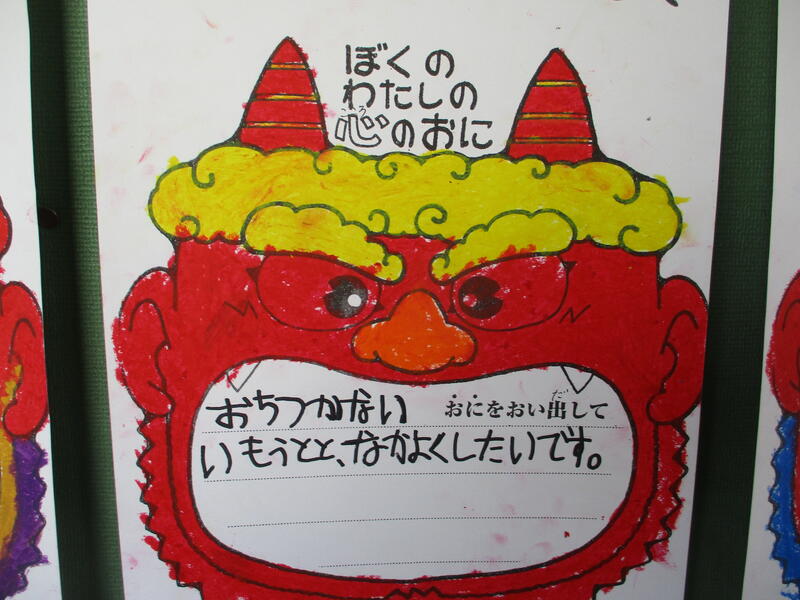 ぼくの
わたしの
心のおに
おちつかない おにをおい出して
いもうとと、なかよくしたいです。